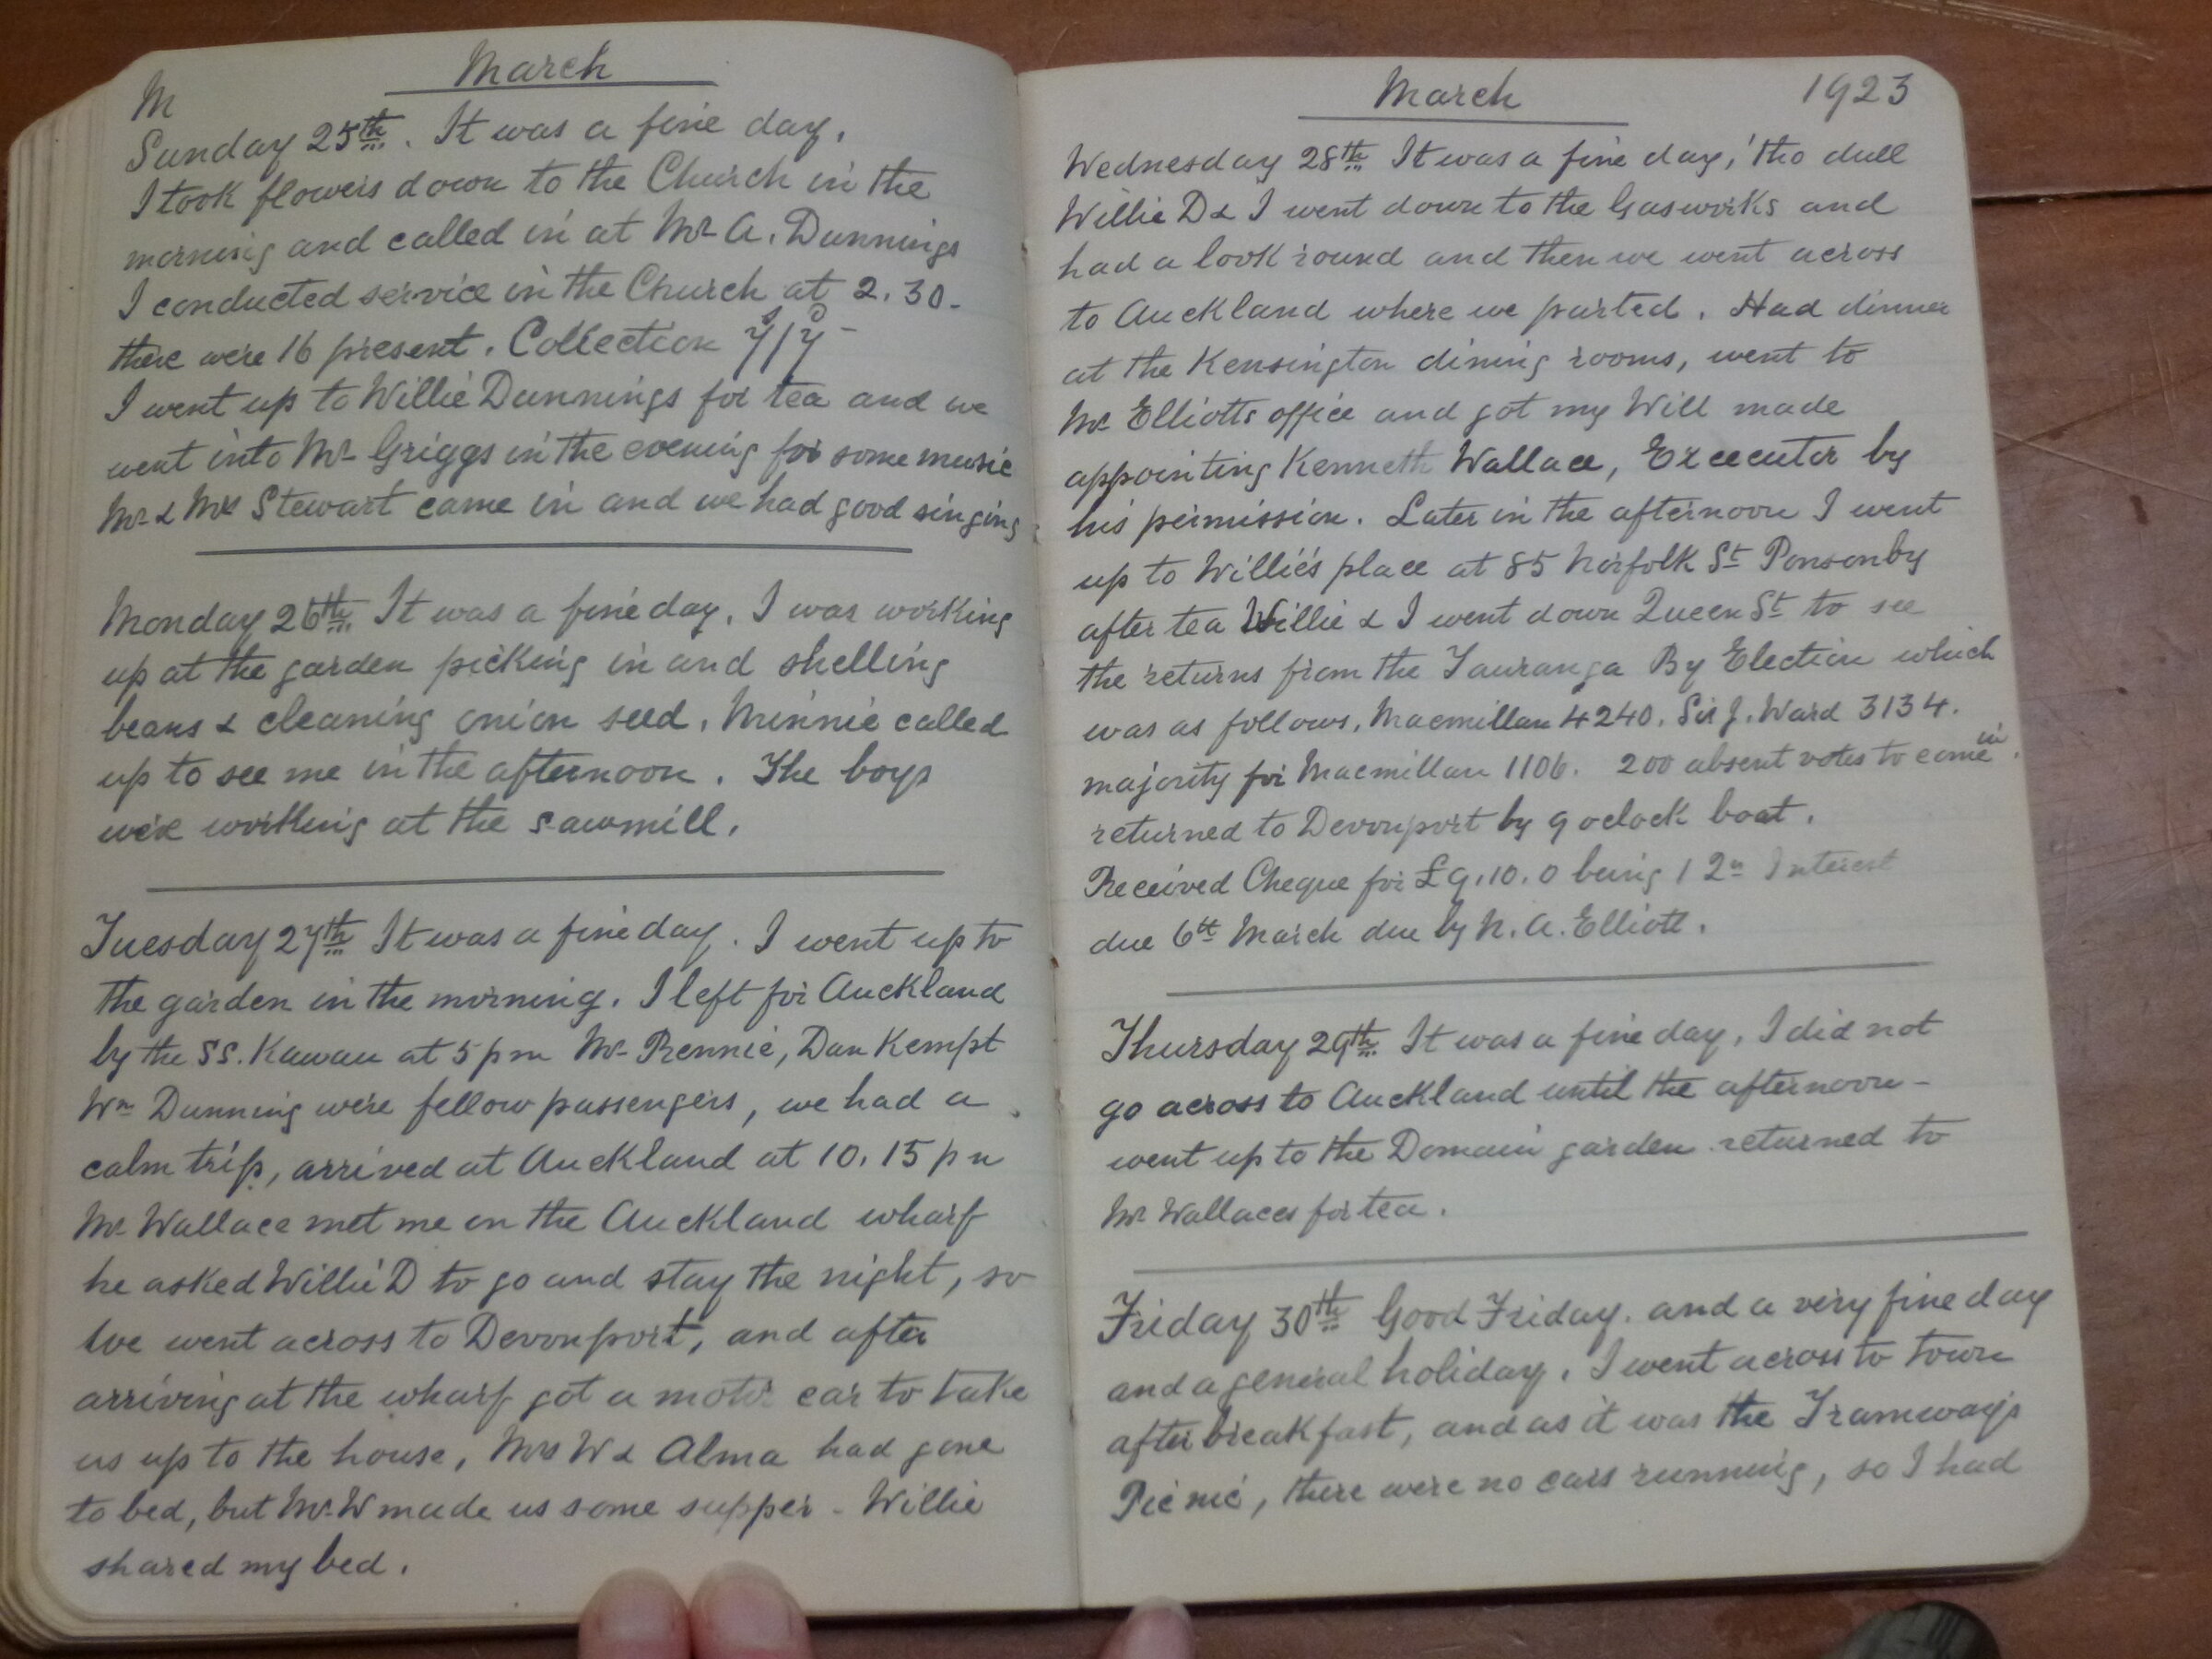 March
M
Sunday 25th. It was a fine day.
I took flowers down to the Church in the
morning and called in at Mr A. Dunnings
I conducted service in the Church at 2.30-
there were 16 present. Collection 7s/7d -
I went up to Willie Dunnings for tea and we
went into Mr Griggs in the evening for some music
Mr & Mrs Stewart came in and we had good singing
Monday 26th It was a fine day. I was working
up at the garden picking in and shelling
beans & cleaning onion seed. Minnie called
up to see me in the afternoon. The boys
were working at the sawmill.
Tuesday 27th It was a fine day. I went up to
the garden in the morning. I left for Auckland
by the SS. Kawau at 5 pm Mr Rennie, Dan Kempt
Wm Dunning were fellow passengers, we had a
calm trip, arrived at Auckland at 10.15 pm
Mr Wallace met me on the Auckland wharf
he asked Willie D to go and stay the night, so
we went across to Devonport, and after
arriving at the wharf got a motor car to take
us up to the house, Mrs W & Alma had gone
to bed, but Mr W made us some supper - Willie
shared my bed.
March 1923
Wednesday 28th It was a fine day, 'tho dull
Willie D & I went down to the Gasworks and
had a look round and then we went across
to Auckland where we parted. Had dinner
at the Kensington dining rooms, went to
Mr Elliotts office and got my Will made
appointing Kenneth Wallace, Executer by
his permission. Later in the afternoon I went
up to Willie's place at 85 Norfolk St Ponsonby
after tea Willie & I went down Queen St to see
the returns from the Tauranga By Election which
was as follows, Macmillan 4240. Sir J. Ward 3134.
majority for Macmillan 1106. 200 absent votes to come in.
returned to Devonport by 9 oclock boat.
Received Cheque for £9.10.0 being 1 2n Interest
due 6th March due by N. A. Elliott.
Thursday 29th It was a fine day, I did not
go across to Auckland until the afternoon-
went up to the Domain garden. returned to
Mr Wallaces for tea.
Friday 30th Good Friday. and a very fine day
and a general holiday. I went across to town
after breakfast, and as it was the Tramways
Picnic, there were no cars running, so I had